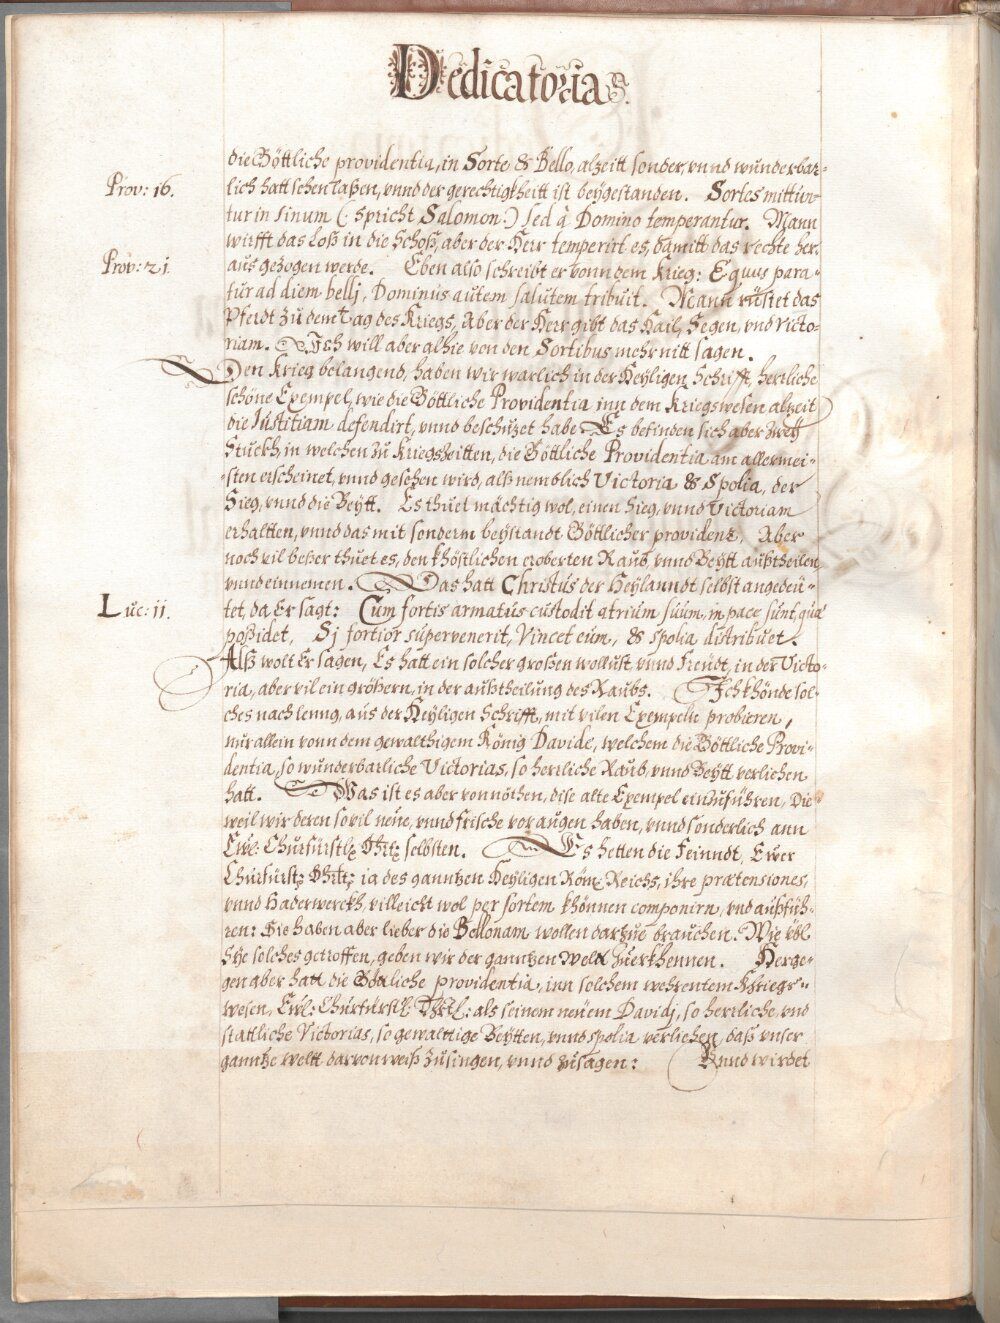 Dedicatoria
die Göttliche providentia, in Sorte & Bello, alzeitt sonder, vnnd wunderbar-
Prov: 16.
lich hatt sehen laßen, vnnd der gerechtigkheitt ist beÿgestanden. Sortes mittun-
tur in sinum (: spricht Salomon:) sed à Domino temperantur. Mann
wirfft das Loß in die Schoß, aber der Herr temperirt es, damitt das rechte her-
Prov: 21.
aus gezogen werde. Eben also schreibt er vonn dem Krieg: Equus para-
tur ad diem bellj, Dominus autem salutem tribuit. Mann rüstet das
Pferdt zu dem tag des Kriegs, Aber der Herr gibt das Hail, Segen, vnd Victo-
riam. Ich will aber alhie von den Sortibus mehr nitt sagen.
Den Krieg belangend, haben wir warlich in der Heyligen Schrifft, herrliche
schöne Exempel, wie die Göttliche Providentia inn dem Kriegswesen alzeit
die Iustitiam defendirt, vnnd beschuzet habe. Es befinden sich aber zweÿ
Stuckh, in welchen zu Kriegszeitten, die Göttliche Providentia am allermei-
sten erscheinet, vnnd gesehen wird, alß nemblich Victoria & Spolia, der
Sieg, vnnd die Beÿtt. Es thuet mächtig wol, einen Sieg, vnnd Victoriam
erhaltten, vnnd das mit sonderm beÿstandt Göttlicher providenz, Aber
noch vil beßer thuet es, den khöstlichen eroberten Raub, vnnd Beÿtt außtheilen
vnnd einnemen. Das hatt Christus der Heylanndt selbst angedeu-
Luc: 11.
tet, da Er sagt: Cum fortis armatus custodit atrium suum, in pace sunt, quæ
poßidet, Sj fortior supervenerit, Vincet eum, & spolia distribuet.
Alß wolt Er sagen, Es hatt ein solcher grossen wollust vnnd Freudt, in der Victo-
ria, aber vil ein größern, in der außtheilung des Raubs. Ich khönde sol-
ches nach lenng, aus der Heyligen Schrifft, mit vilen Exempeln probieren,
nur allein vonn dem gewalthigem König Davide, welchem die Göttliche Provi-
dentia, so wunderbarliche Victorias, so herrliche Raub, vnnd Beÿtt verliehen
hatt. Was ist es aber vonnöthen, dise alte Exempel einzuführen, Die
weil wir deren so vil neüe, vnnd frische vor augen haben, vnnd sonderlich ann
Ewl: Churfürstl: Dhrl: selbsten. Es hetten die Feinndt, Ewer
Churfürstl: Dhrl: ia des ganntzen Heyligen Röm: Reichs, ihre prætensiones,
vnnd Haderwerckh, villeicht wol per sortem khönnen componirn, vnd außfüh-
ren: Sie haben aber lieber die Bellonam wollen darzue brauchen. Wie vbl
Sÿe solches getroffen, geben wir der ganntzen Welt zuerkhennen. Herge-
gen aber hatt die Göttliche providentia, inn solchem wehrentem Khriegs-
wesen, Ewl: Churfürstl: Dhrl: als seinem neüem Davidj, so herrliche, vnd
stattliche Victorias, so gewalttige Beÿtten, vnnd spolia verliehen, daß vnser
ganntze weltt darvon weiß zusingen, vnnd zusagen: Vnnd wirdet